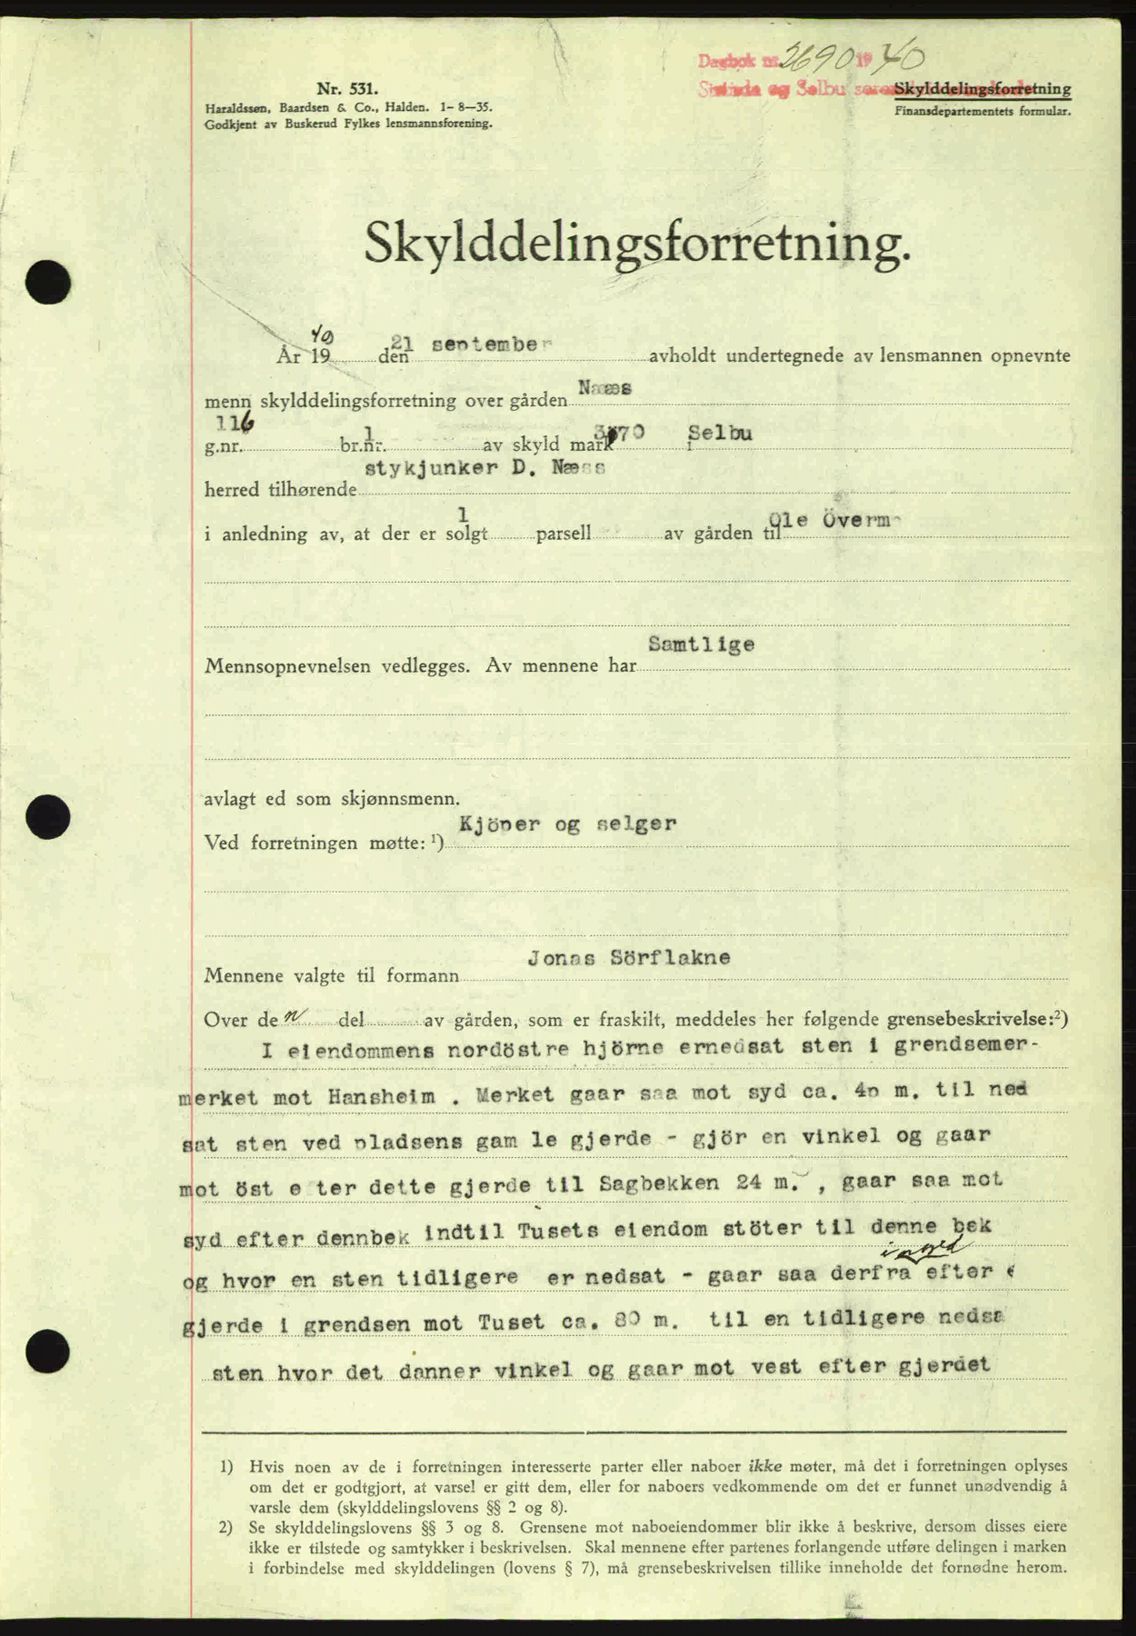 Dagbok nr. 2690 19 40
Nr. 531.
Haraldssen, Baardsen & Co., Halden. 1-8-35.
Godkjent av Buskerud Fylkes lensmannsforening.
Skylddelingsforretning
Finansdepartementets formular.
Skylddelingsforretning.
År 1940 den 21 september avholdt undertegnede av lensmannen opnevnte
menn skylddelingsforretning over gården Næss
g.nr. 116 br.nr. 1 av skyld mark i Selbu
herred tilhørende stykjunker D. Næss
i anledning av, at der er solgt 1 parsell av gården til Ole Överm
Mennsopnevnelsen vedlegges. Av mennene har Samtlige
avlagt ed som skjønnsmenn.
Ved forretningen møtte: 1) Kjöper og selger
Mennene valgte til formann Jonas Sörflakne
Over de n del av gården, som er fraskilt, meddeles her følgende grensebeskrivelse:2)
I eiendommens nordöstre hjörne ernedsat sten i grendsemer-
merket mot Hansheim . Merket gaar saa mot syd ca. 40 m. til ned
sat sten ved pladsens gam le gjerde - gjör en vinkel og gaar
mot öst e ter dette gjerde til Sagbekken 24 m. , gaar saa mot
syd efter dennbek indtil Tusets eiendom stöter til denne bek
og hvor en sten tidligere er nedsat - gaar saa derfra efter
gjerde i grendsen mot Tuset ca. 80 m. til en tidligere nedsa
sten hvor det danner vinkel og gaar mot vest efter gjerdet
1) Hvis noen av de i forretningen interesserte parter eller naboer ikke møter, må det i forretningen oplyses
om det er godtgjort, at varsel er gitt dem, eller for naboers vedkommende om det er funnet unødvendig å
varsle dem (skylddelingslovens §§ 2 og 8).
2) Se skylddelingslovens §§ 3 og 8. Grensene mot naboeiendommer blir ikke å beskrive, dersom disses eiere
ikke er tilstede og samtykker i beskrivelsen. Skal mennene efter partenes forlangende utføre delingen i marken
i forbindelse med skylddelingen (lovens § 7), må grensebeskrivelsen tillike inneholde det fornødne herom.